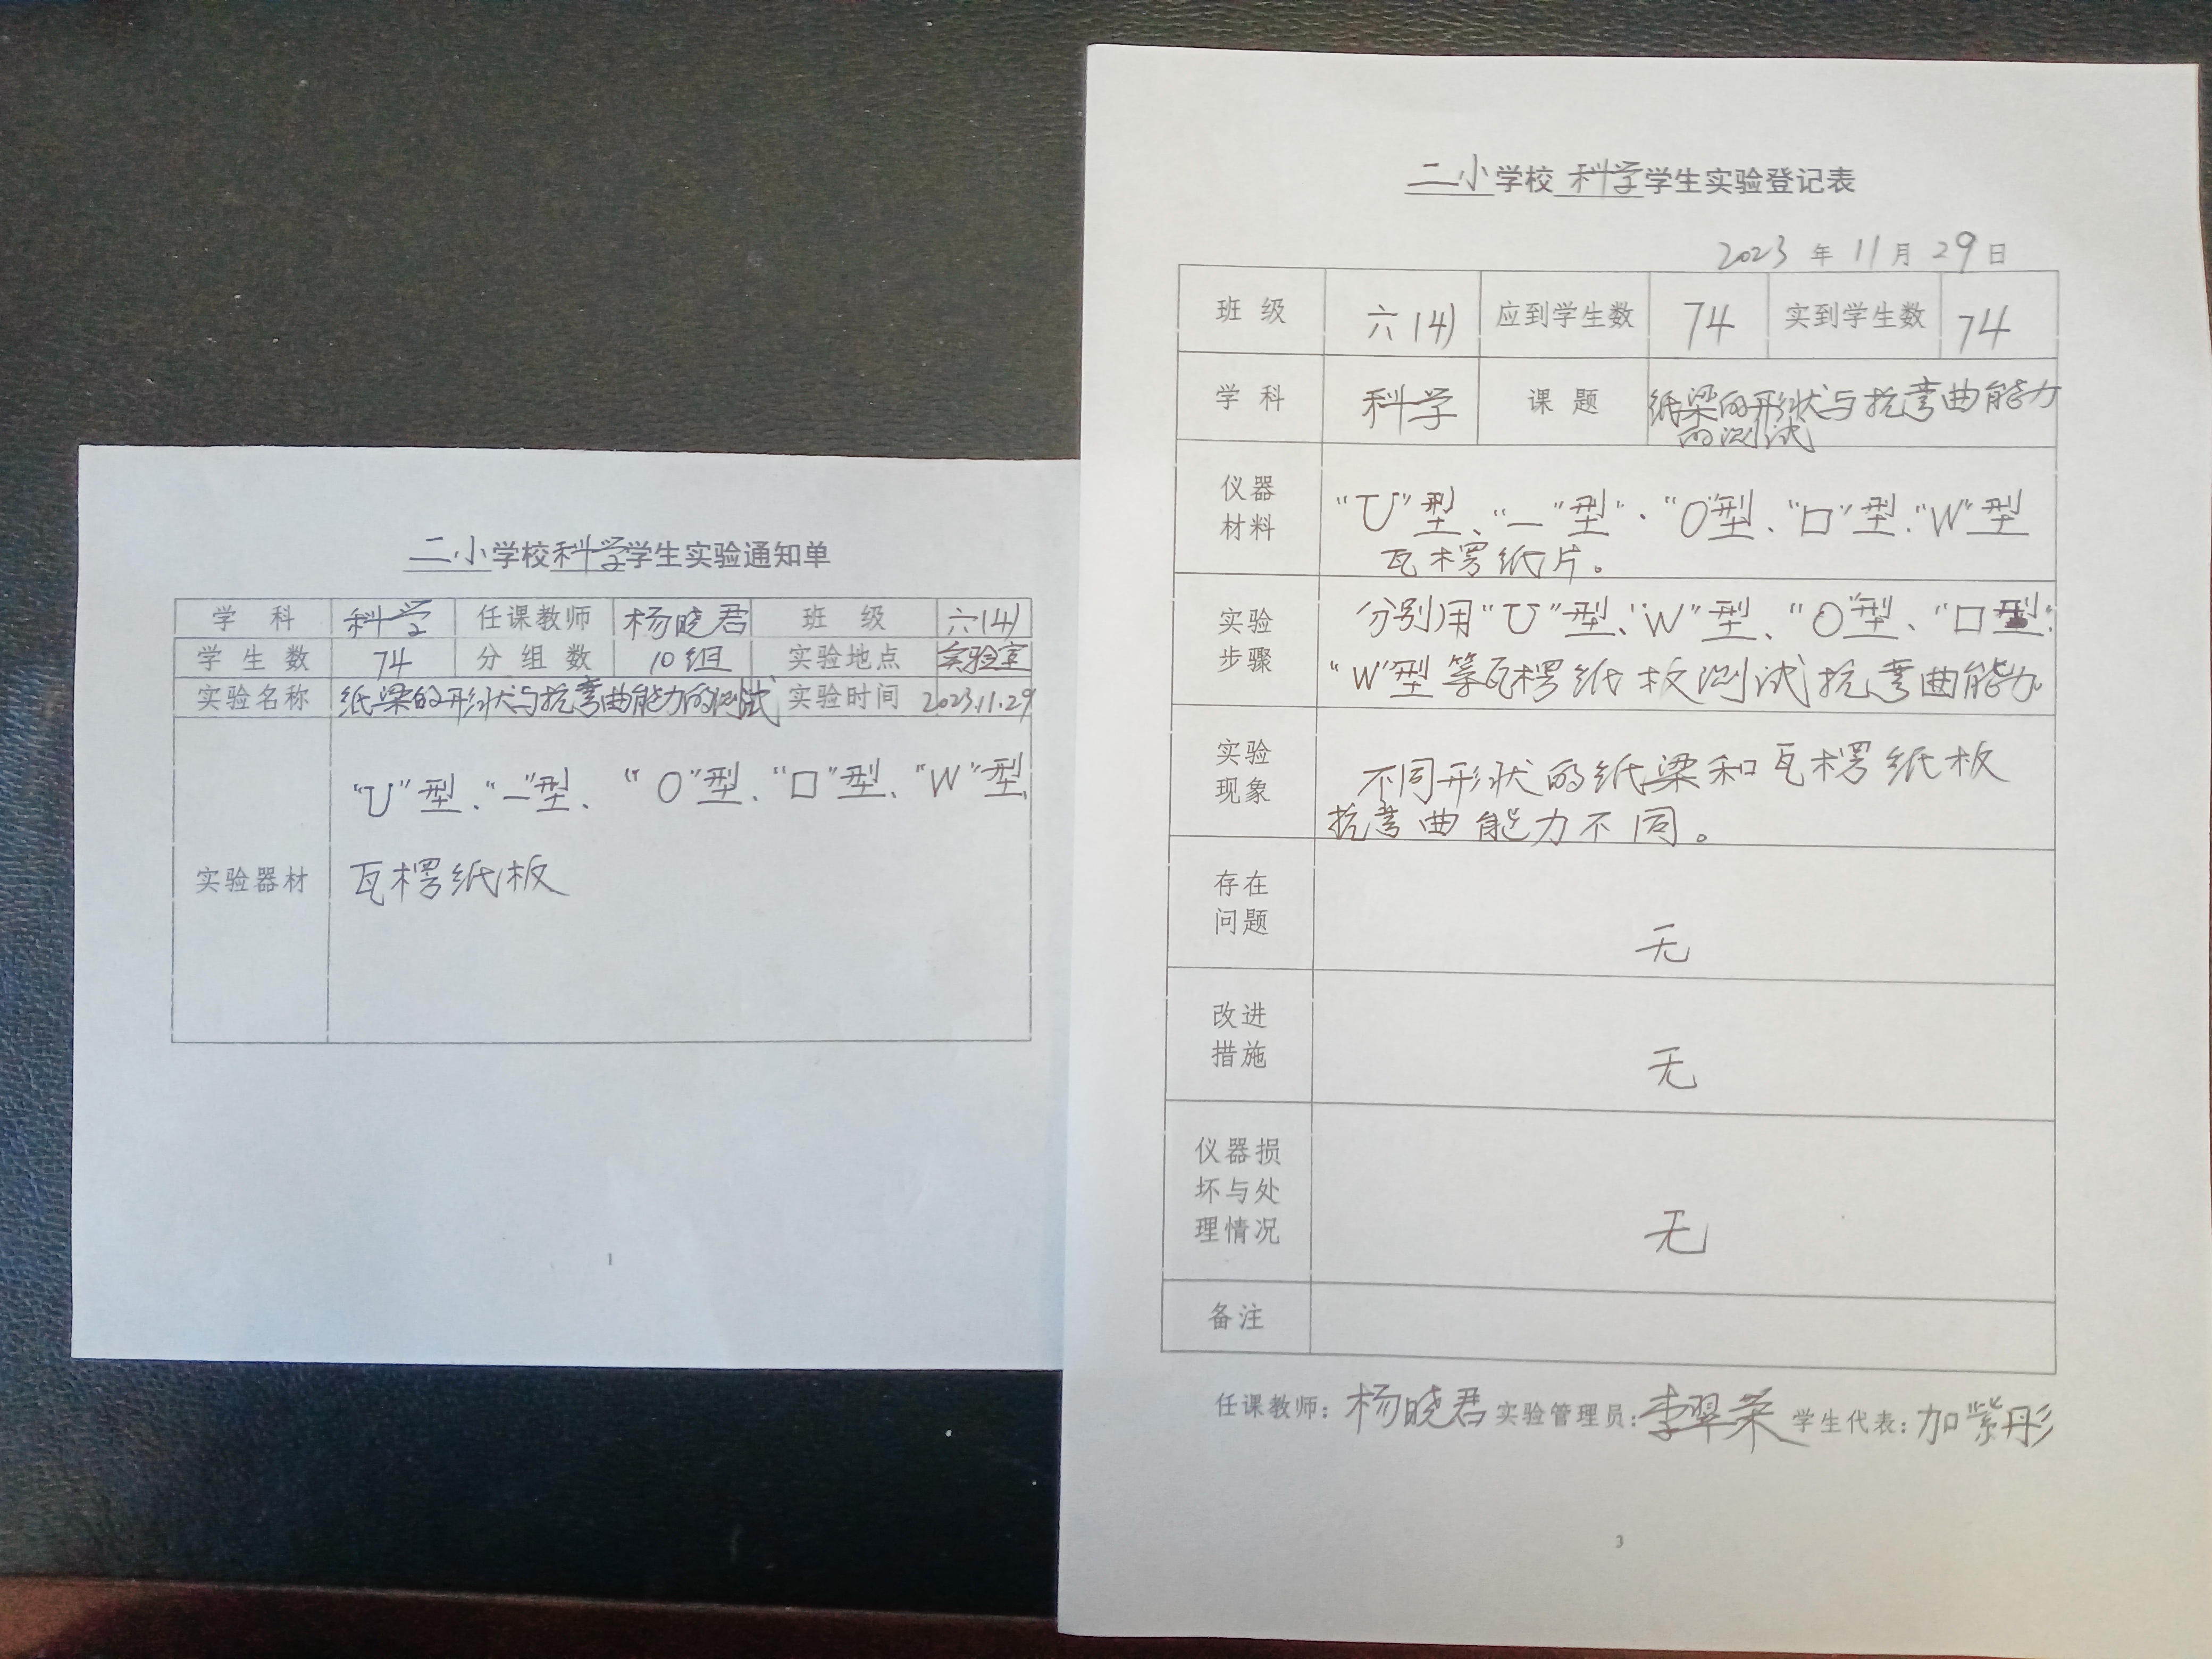 二小学校科学学生实验通知单
学 科 科学 任课教师 杨晓君 班 级 六(4)
学 生 数 74 分 组 数 10组 实验地点 实验室
实验名称 纸梁的形状与抗弯曲能力的测试 实验时间 2023.11.29
实验器材
“U”型、“一”型、“O”型、“口”型、“W”型、
瓦楞纸板
1
二小学校 科学学生实验登记表
2023 年 11 月 29 日
班 级 六(4) 应到学生数 74 实到学生数 74
学 科 科学 课 题 纸梁的形状与抗弯曲能力
的测试
仪器
材料
“U”型、“一”型”.“O”型、“口”型.“W”型
瓦楞纸片。
实验
步骤
分别用“U”型、“W”型、“O”型、“口型:
“W”型等瓦楞纸板测试抗弯曲能力
实验
现象
不同形状的纸梁和瓦楞纸板
抗弯曲能力不同。
存在
问题
无
改进
措施
无
仪器损
坏与处
理情况
无
备注
任课教师：杨晓君 实验管理员：李翠荣 学生代表：加紫彤
3